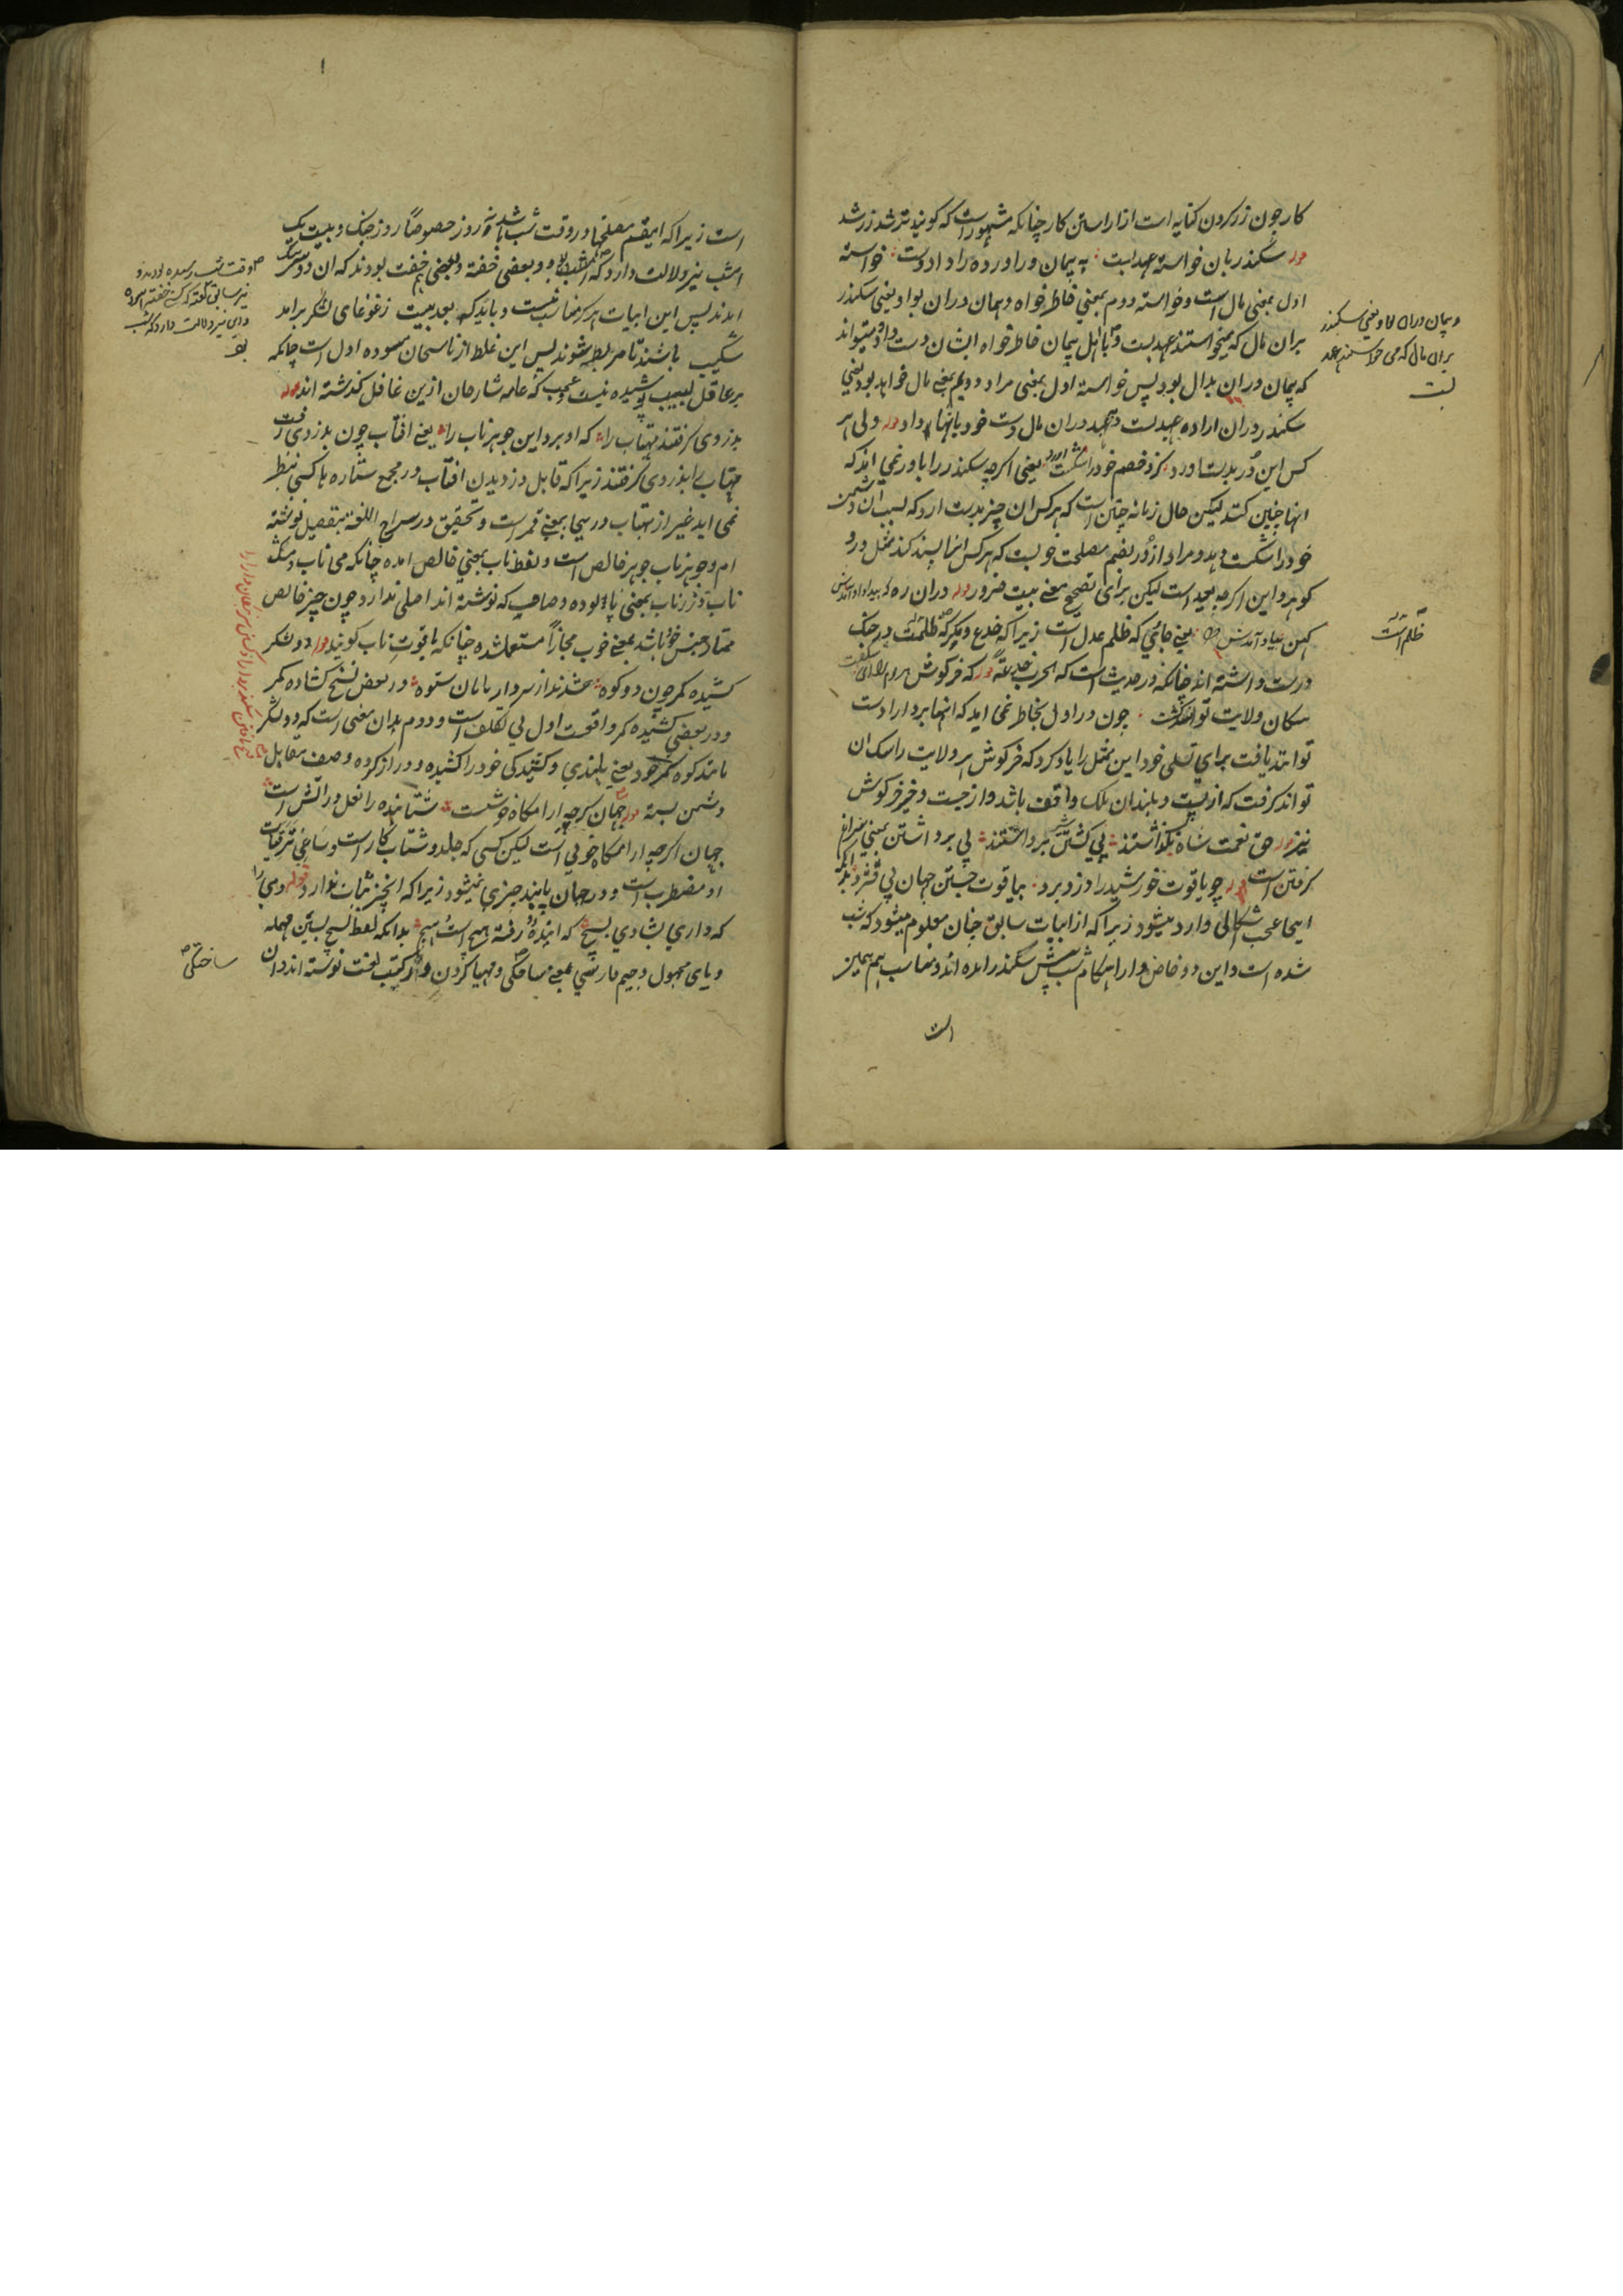 کار چون زر کردن کنایه است از اراستن کار چنانکه مشهور است که کویند تر شد زر شد
سکندر بان خواسته عهد بست به پیمان وراورده را داد دست خواسته
اول بمعنی مال است و خواسته دوم بمعنی خاطر خواه و پیمان دران بوا و یعنی سکندر
بران مال که میخواستند عهد بست و با اهل پیمان خاطر خواه ایشان دست داد و میتواند
که پیمان دران بدال بود پس خواسته اول بمعنی مراد و دویم بمعنی مال خواهد بود یعنی
سکندر دران اراده عهد بست و عهد دران مال دست خود بانها داد وله ولی هر
کس این در بدست اورد کزو خصم خود را شکست اورد یعنی اکرچه سکندر را باور نمی امد که
انها چنین کنند لیکن حال زمانه چنین است که هر کس ان چیز بدست ارد که بسبب ان دشمن
خود را شکست دهد و مراد از در بضم مصلحت خوبست که هر کس انرا پسند کند مثل در و
کوهر و این اکرچه بعید است لیکن برای تصحیح معنی بیت ضرور وله دران ره که بیداد داد امدش
کهن یاد امدش یعنی جائی که ظلم عدل است زیرا که خدع و مکر که ظلمست در جنک
درست داشته اند چنانکه در حدیث است که الحرب خدعة وله که خرکوش هر مرز را بی شکفت
سکان ولایت توانند کرفت چون در اول بخاطر نمی امد که انها بر دارا دست
توانند یافت برای تسلی خود این مثل را یاد کرد که خرکوش هر ولایت را سک ان
تواند کرفت که از پست و بلند ان ملک واقف باشد و از جست و خیز خرکوش
نیز وله حق نعمت شاه بکذاشتند پی کشتنش برداشتند پی برداشتن بمعنی سراغ
کرفتن است وله چو یاقوت خورشید را دزد برد بیاقوت جستن جهان پی فشرد بدانکه
اینجا عجب اشکالی وارد میشود زیرا که از ابیات سابق چنان معلوم میشود که شب
شده است و این دو خاص دارا هنکام شب پیش سکندر امده اند و مناسب هم همین
است
و پیمان دران بوا و یعنی سکندر
بران مال که می خواستند عهد
بست
ظلم است
است زیرا که اینقسم مصلحتها در وقت شب باشد نه روز خصوصا روز جنک و بیت یک
امشب نیز دلالت دارد که شب بود و بعضی خفته و بعضی بخفت بودند که ان دو سرهنک
امدند پس این ابیات هر کز مناسب نیست و باید که بعد بیت ز غوغای لشکر برامد
شکیب باشند تا مربوط شوند پس این غلط از ناسخان مسوده اول است چنانکه
بر عاقل لبیب پوشیده نیست عجب که عامه شارحان ازین غافل کذشته اند وله
بدزدی کرفتند مهتاب را که او برد این جوهر ناب را یعنی افتاب چون بدزدی رفت
مهتاب را بدزدی کرفتند زیرا که قابل دزدیدن افتاب در مجمع ستاره ها کسی بنظر
نمی اید غیر از مهتاب درینجا بمعنی قمر است و تحقیق در سراج اللغة بتفصیل نوشته
ام و جوهر ناب جوهر خالص است و لفظ ناب بمعنی خالص امده چنانکه می ناب و مشک
ناب و زر ناب بمعنی پالوده و صاحب که نوشته اند اصلی ندارد چون چیز خالص
ممتاز جنس خود باشد بمعنی خوب مجازا مستعمل شده چنانکه یاقوت ناب کویند وله دو لشکر
کشیده کمر چون دو کوه شدند از سردار بامان ستوه در بعض نسخ کشاده کمر
و در بعضی کشیده کمر واقعست اول بی تکلف است و دوم بدان معنی است که دو لشکر
مانند کوه کمر خود یعنی بلندی و کشیدکی خود را کشیده و دراز کرده و صف مقابل
دشمن بسته وله جهان کرچه ارامکاه خوشست شتابنده را نعل در اتش است
جهان اکرچه ارامکاه خوبی است لیکن کسی که جلد و شتاب کار است و ساعی ترقیات
او مضطرب است و در جهان پابند چیزی نمیشود زیرا که انچیز ثبات ندارد قوله دمی را
که داری بشادی بسیج که اینده و رفته هیچ است هیچ بدانکه لفظ بسیج بسین مهمله
و یای مجهول و جیم فارسی بمعنی ساختکی و مهیا کردن و در کتب لغت نوشته اند دران
نیز سابق کفته که کسی خفته
و این نیز دلالت دارد که شب
بود
ساختکی